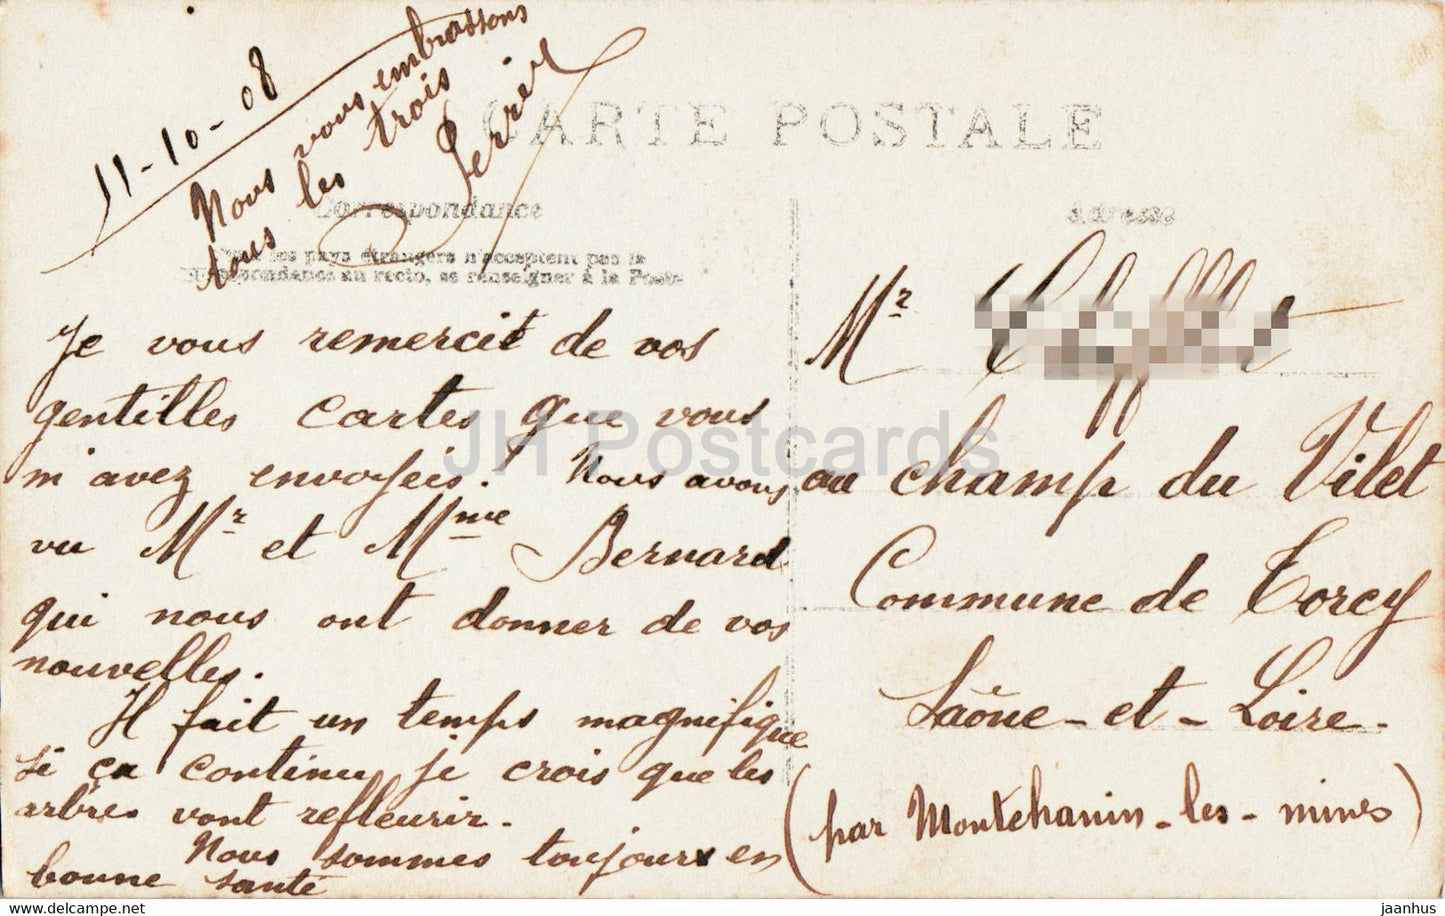 11-10-08
Nous vous embrassons
tous les trois
Perrin
CARTE POSTALE
Correspondance
Adresse
les pays étrangers n'acceptent pas la
correspondance au recto, se renseigner à la Poste
Je vous remercie de vos
gentilles cartes que vous
m'avez envoyeés! Nous avons
vu Mr et Mme Bernard
qui nous ont donner de vos
nouvelles.
Il fait un temps magnifique
si ça continu je crois que les
arbres vont refleurir.
Nous sommes toujours en
bonne santé
Mr
au champ du Vilet
Commune de Torcy
Saône-et-Loire.
(par Montchanin-les-mines)
JH Postcards
jaanhus
jhpostcards.com